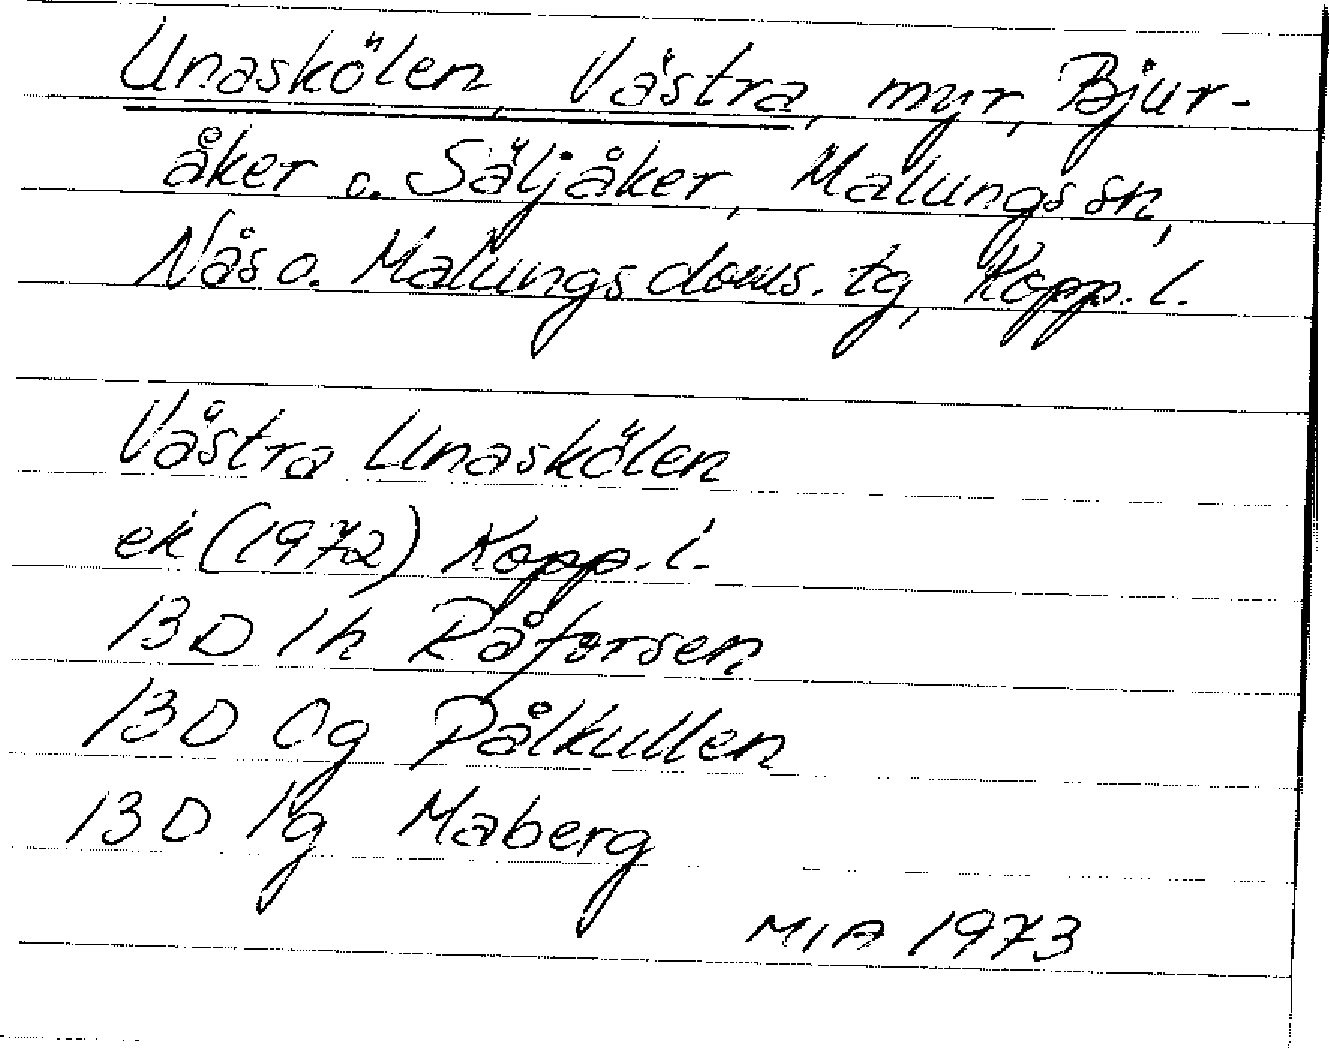 Unaskölen, Västra, myr, Bjur-
åker o. Säljåker, Malungs sn,
Nås o. Malungs doms. tg, Kopp. l.
Västra Unaskölen
ek (1972) Kopp. l.
13D 1h Råforsen
13D 0g Pålkullen
13D 1g Maberg
MIA 1973